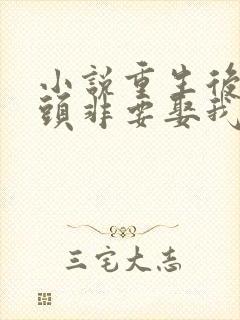 小説重生後
頭非要娶我
三宅大志